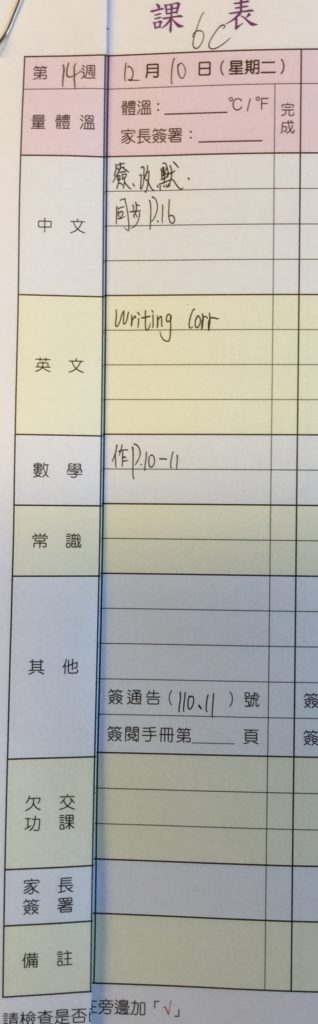 課表
6C
第14週 12月10日(星期二)
量體溫 體溫:______°C/°F 完成
家長簽署:______
中文 簽.改默.
同步P.16
英文 Writing Corr
數學 作P.10-11
常識
其他
簽通告(110、11)號 簽
簽閱手冊第____頁 簽
欠交功課
家長簽署
備註
請檢查是否
在旁邊加「√」